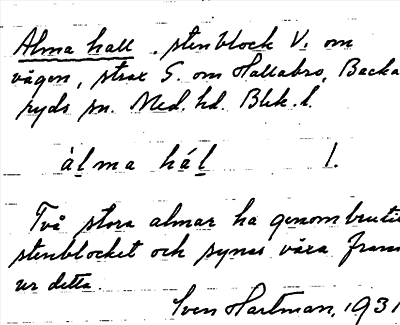 Alma hall, stenblock V. om
vägen, strax S. om Hallabro, Backa
ryds sn. Med. hd. Blek. l.
àlma hál 1.
Två stora almar ha genombrutit
stenblocket och synas växa fram
ur detta.
Sven Hartman, 1931